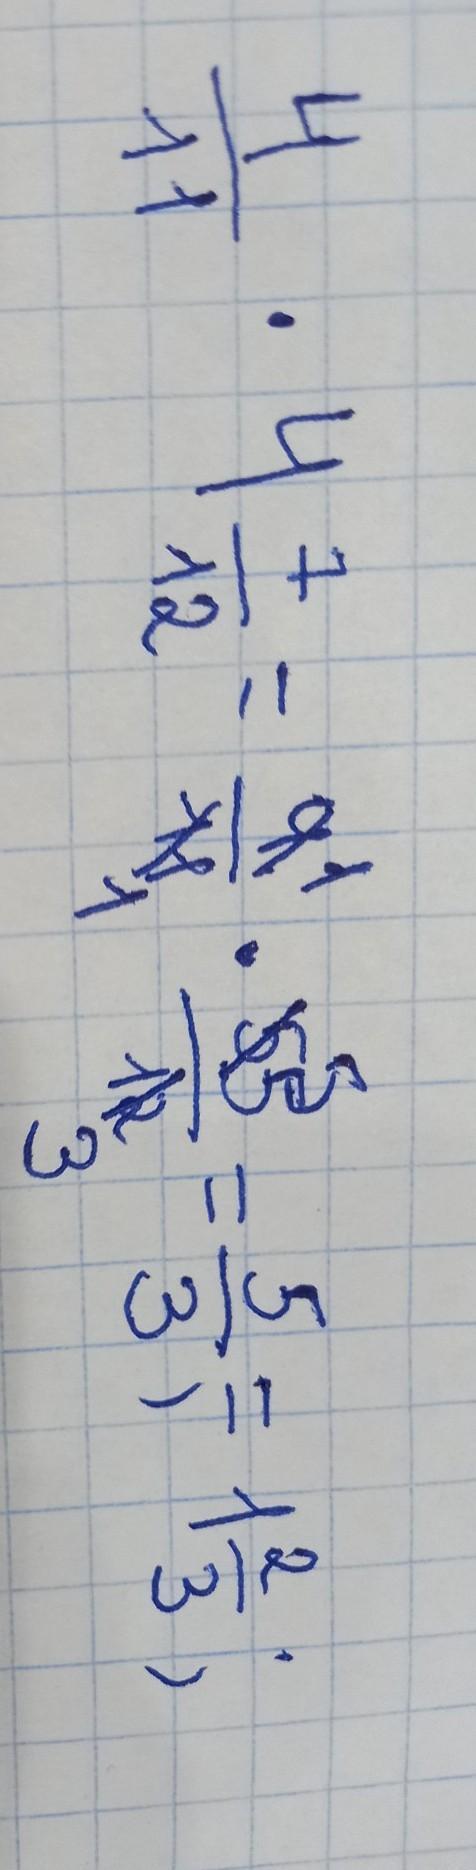 4/11 · 4 7/12 = 4 1/11 1 · 55 5/12 3 = 5/3 = 1 2/3 ;